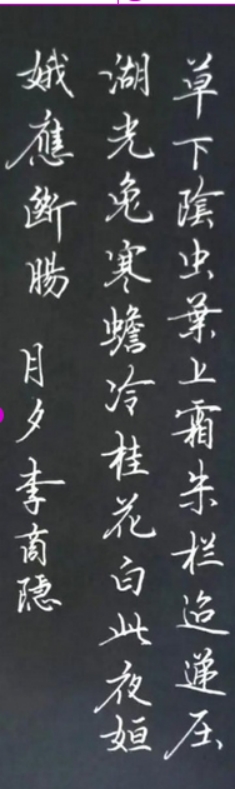 草下陰虫葉上霜朱栏迢遞压
湖光兔寒蟾冷桂花白此夜姮
娥應斷腸 月夕李商隐